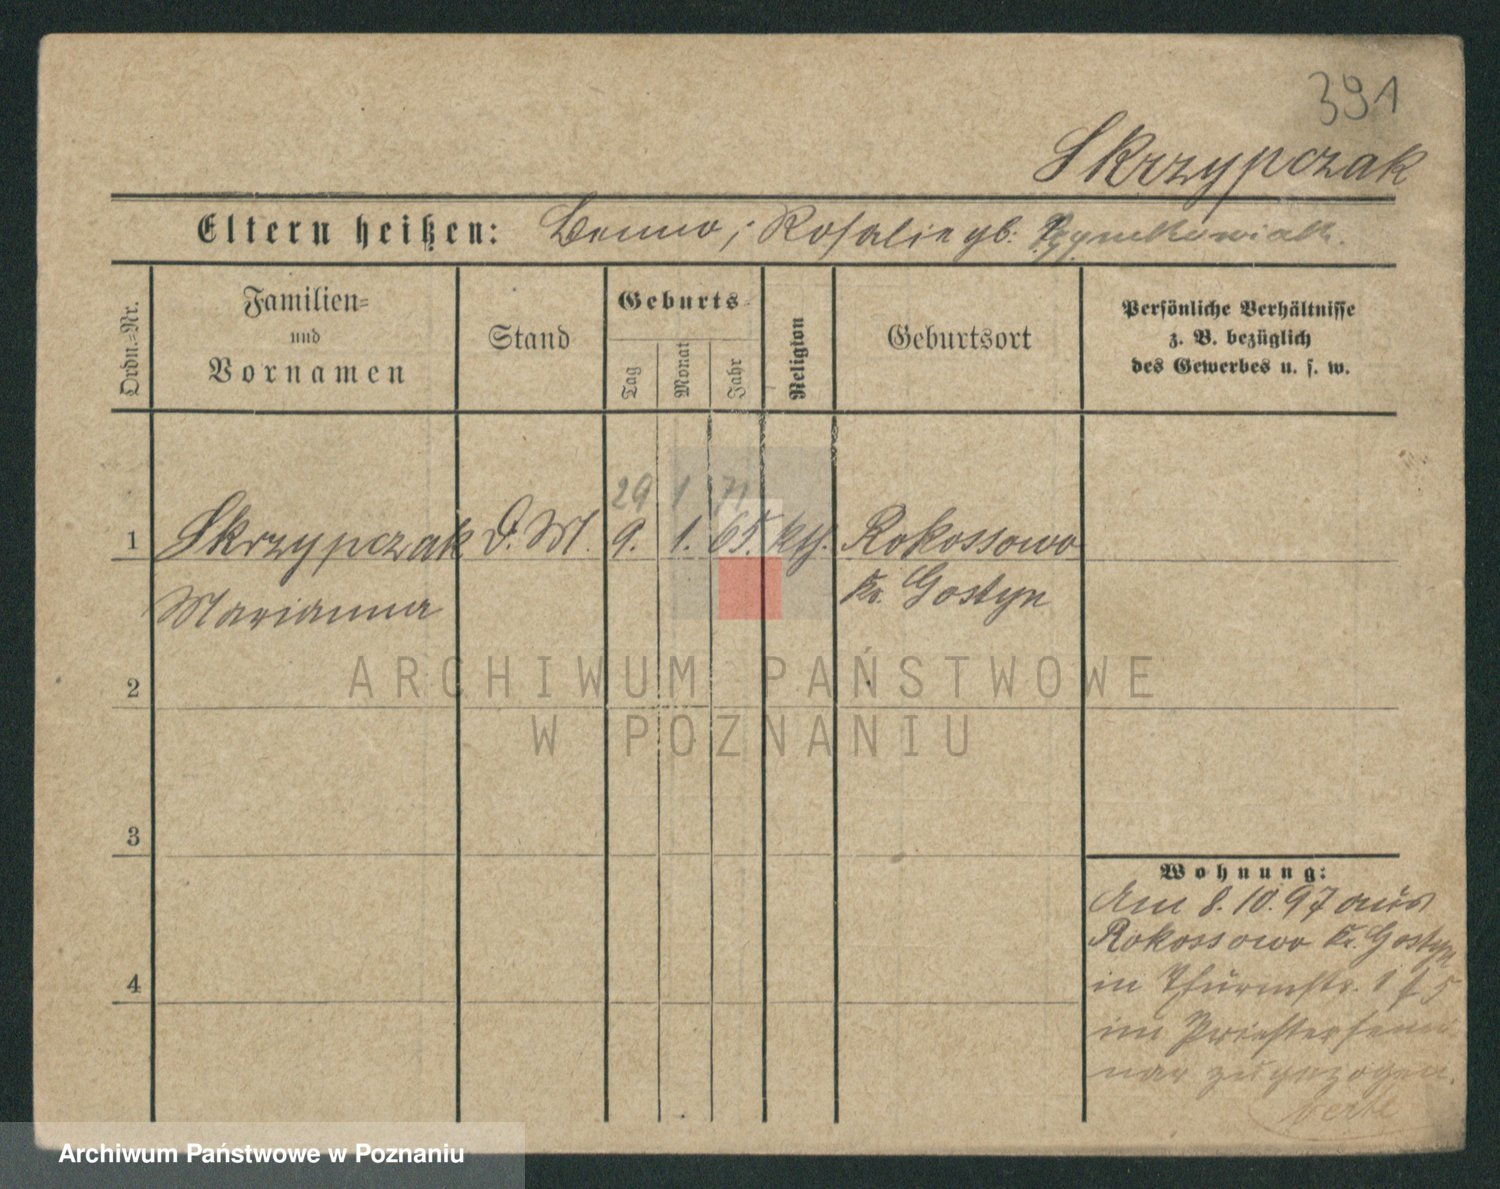 391
Skrzypczak
Eltern heißen: Benno, Rosalie gb.
Ordn.-Nr.
Familien-
und
Vornamen
Stand
Geburts-
Tag
Monat
Jahr
Religion
Geburtsort
Persönliche Verhältnisse
z. B. bezüglich
des Gewerbes u. s. w.
29 1 71
1 Skrzypczak D. M. 9. 1. 65. kth. Rokossowo
Marianna Kr. Gostyn
2
ARCHIWUM PAŃSTWOWE
W POZNANIU
3
Wohnung:
Am 8.10.97 aus
Rokossowo Kr. Gostyn
4
in Thurmstr. 1 / 5
im Priestersemi
nar zugezogen.
Archiwum Państwowe w Poznaniu